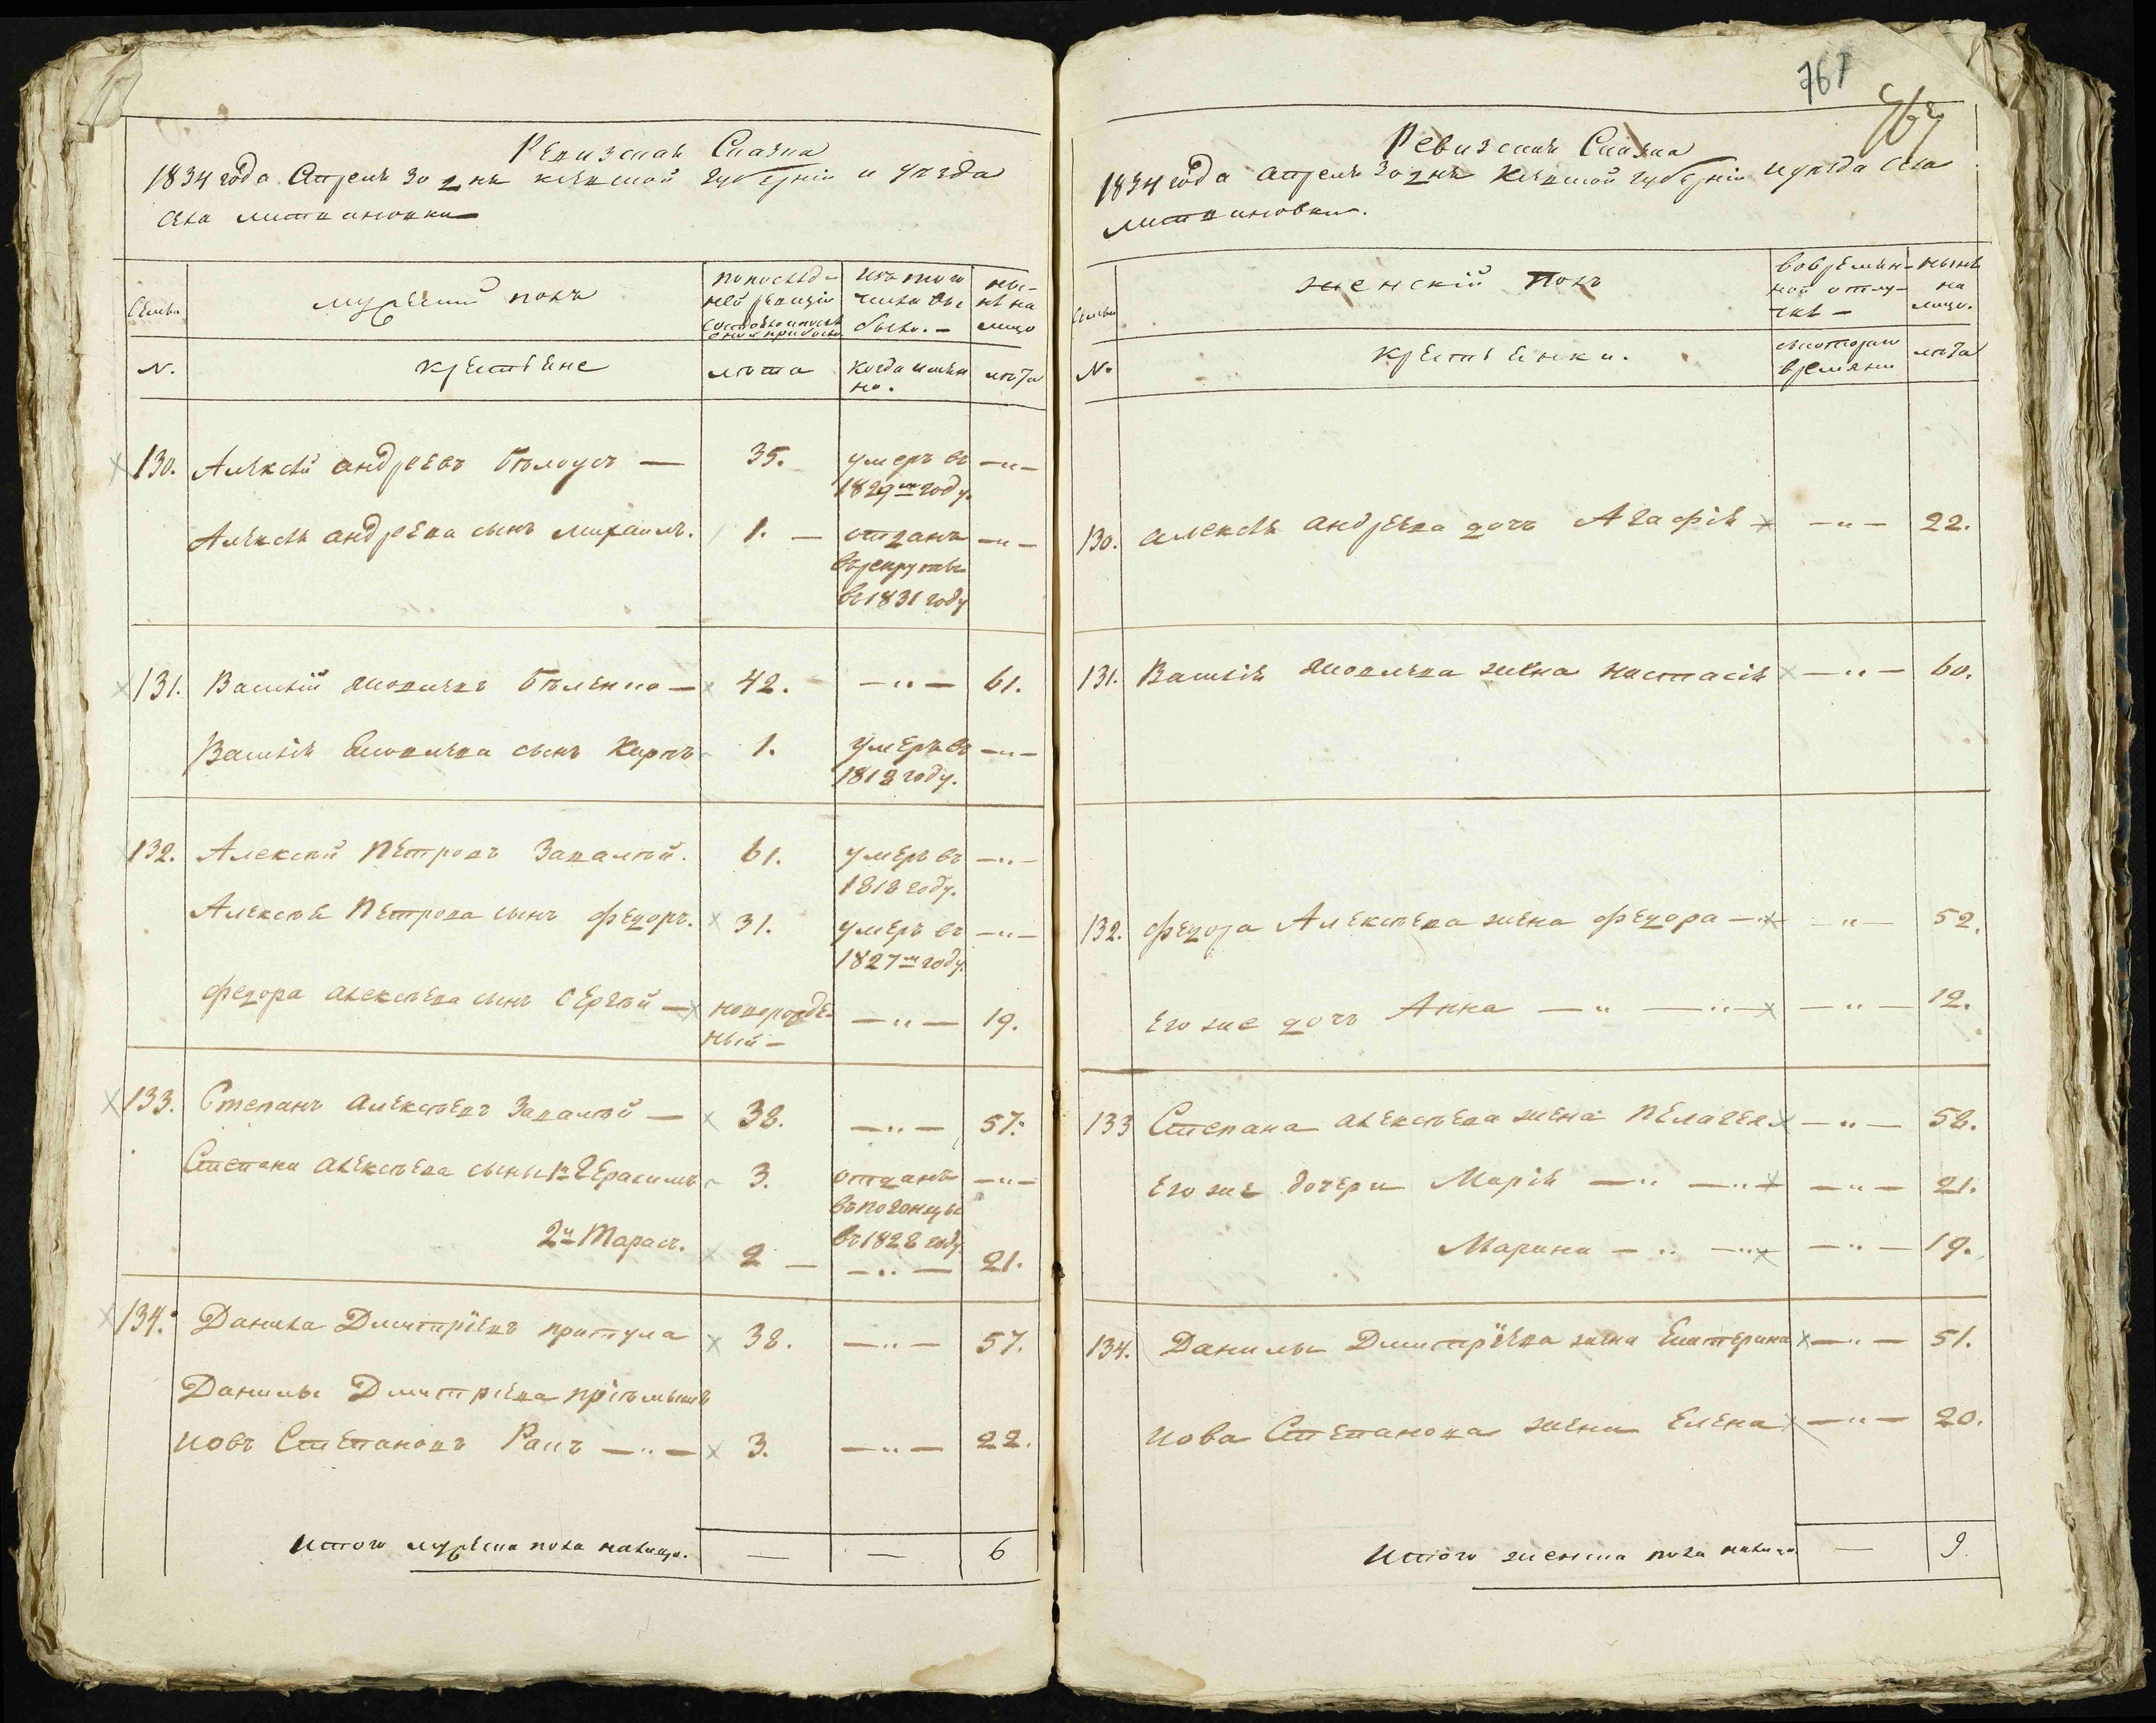 Ревизская Сказка
1834 года Апреля 30 дня Киевской Губерніи и уезда
села Литвиновки
Семьи
мужеский полъ
по послед-
ней ревизіи
состояло и после
оной прибыло
изъ того
числа вы
было. —
ны-
нѣ на
лицо
№.
крестьяне
лѣта
когда имян
но.
лѣта
130. Алексей андреевъ бѣлоусъ — 35. умеръ въ —"—
1829м году.
Алексея андреева сынъ михаилъ. 1. — отданъ —"—
въ рекруты
въ 1831 году
131. Василій Яковлевъ Бѣленко — 42. —"— 61.
Василія Яковлева сынъ Карпъ 1. умеръ въ —"—
1818 году.
132. Алексѣй Петровъ Завалѣй. 61. умеръ въ —"—
1818 году.
Алексѣя Петрова сынъ федоръ. 31. умеръ въ —"—
1827м году.
федора алексѣева сынъ Сергѣй — новорожде- —"— 19.
ный —
133. Степанъ алексѣевъ Завалѣй — 38. —"— 57.
Степана алексѣева сыны 1й Герасимъ 3. отданъ —"—
въ погонцы
въ 1828 году
2й Тарасъ. 2 — —"— 21.
134. Данила Дмитріевъ притула 38. —"— 57.
Данилы Дмитріева пріемышъ
иовъ Степановъ Ракъ —"— 3. —"— 22.
Итого мужеска пола налицо. — — 6
767
767
Ревизская Сказка
1834 года апреля 30 дня Киевской губерніи и уезда села
литвиновки.
Семьи
женскій полъ
во времян-
ной отлу-
чке —
ныне
на
лицо.
№
крестьянки.
с которого
времяни
лѣта
130. алексѣя андреева дочь Агафія —"— 22.
131. Василія Яковлева жена настасія —"— 60.
132. федора Алексѣева жена федора —"— —"— 52.
его же дочь Анна —"— —"— —"— 12.
133 Степана алексѣева жена Пелагея —"— 58.
его же дочери Марія —"— —"— —"— 21.
Марина —"— —"— —"— 19.
134. Данилы Дмитріева жена Екатерина —"— 51.
иова Степанова жена Елена —"— 20.
Итого женска пола налицо. — 9.